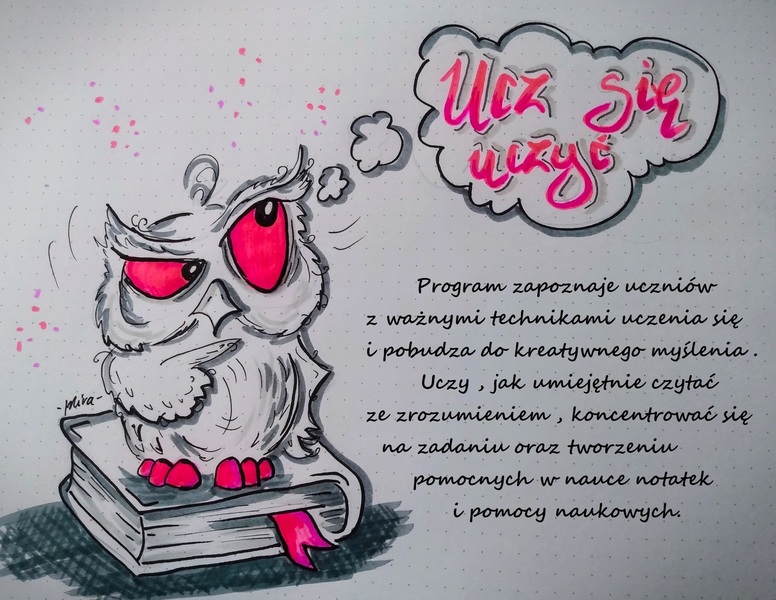 Ucz się
uczyć
Program zapoznaje uczniów
z ważnymi technikami uczenia się
i pobudza do kreatywnego myślenia .
Uczy , jak umiejętnie czytać
ze zrozumieniem , koncentrować się
na zadaniu oraz tworzeniu
pomocnych w nauce notatek
i pomocy naukowych.